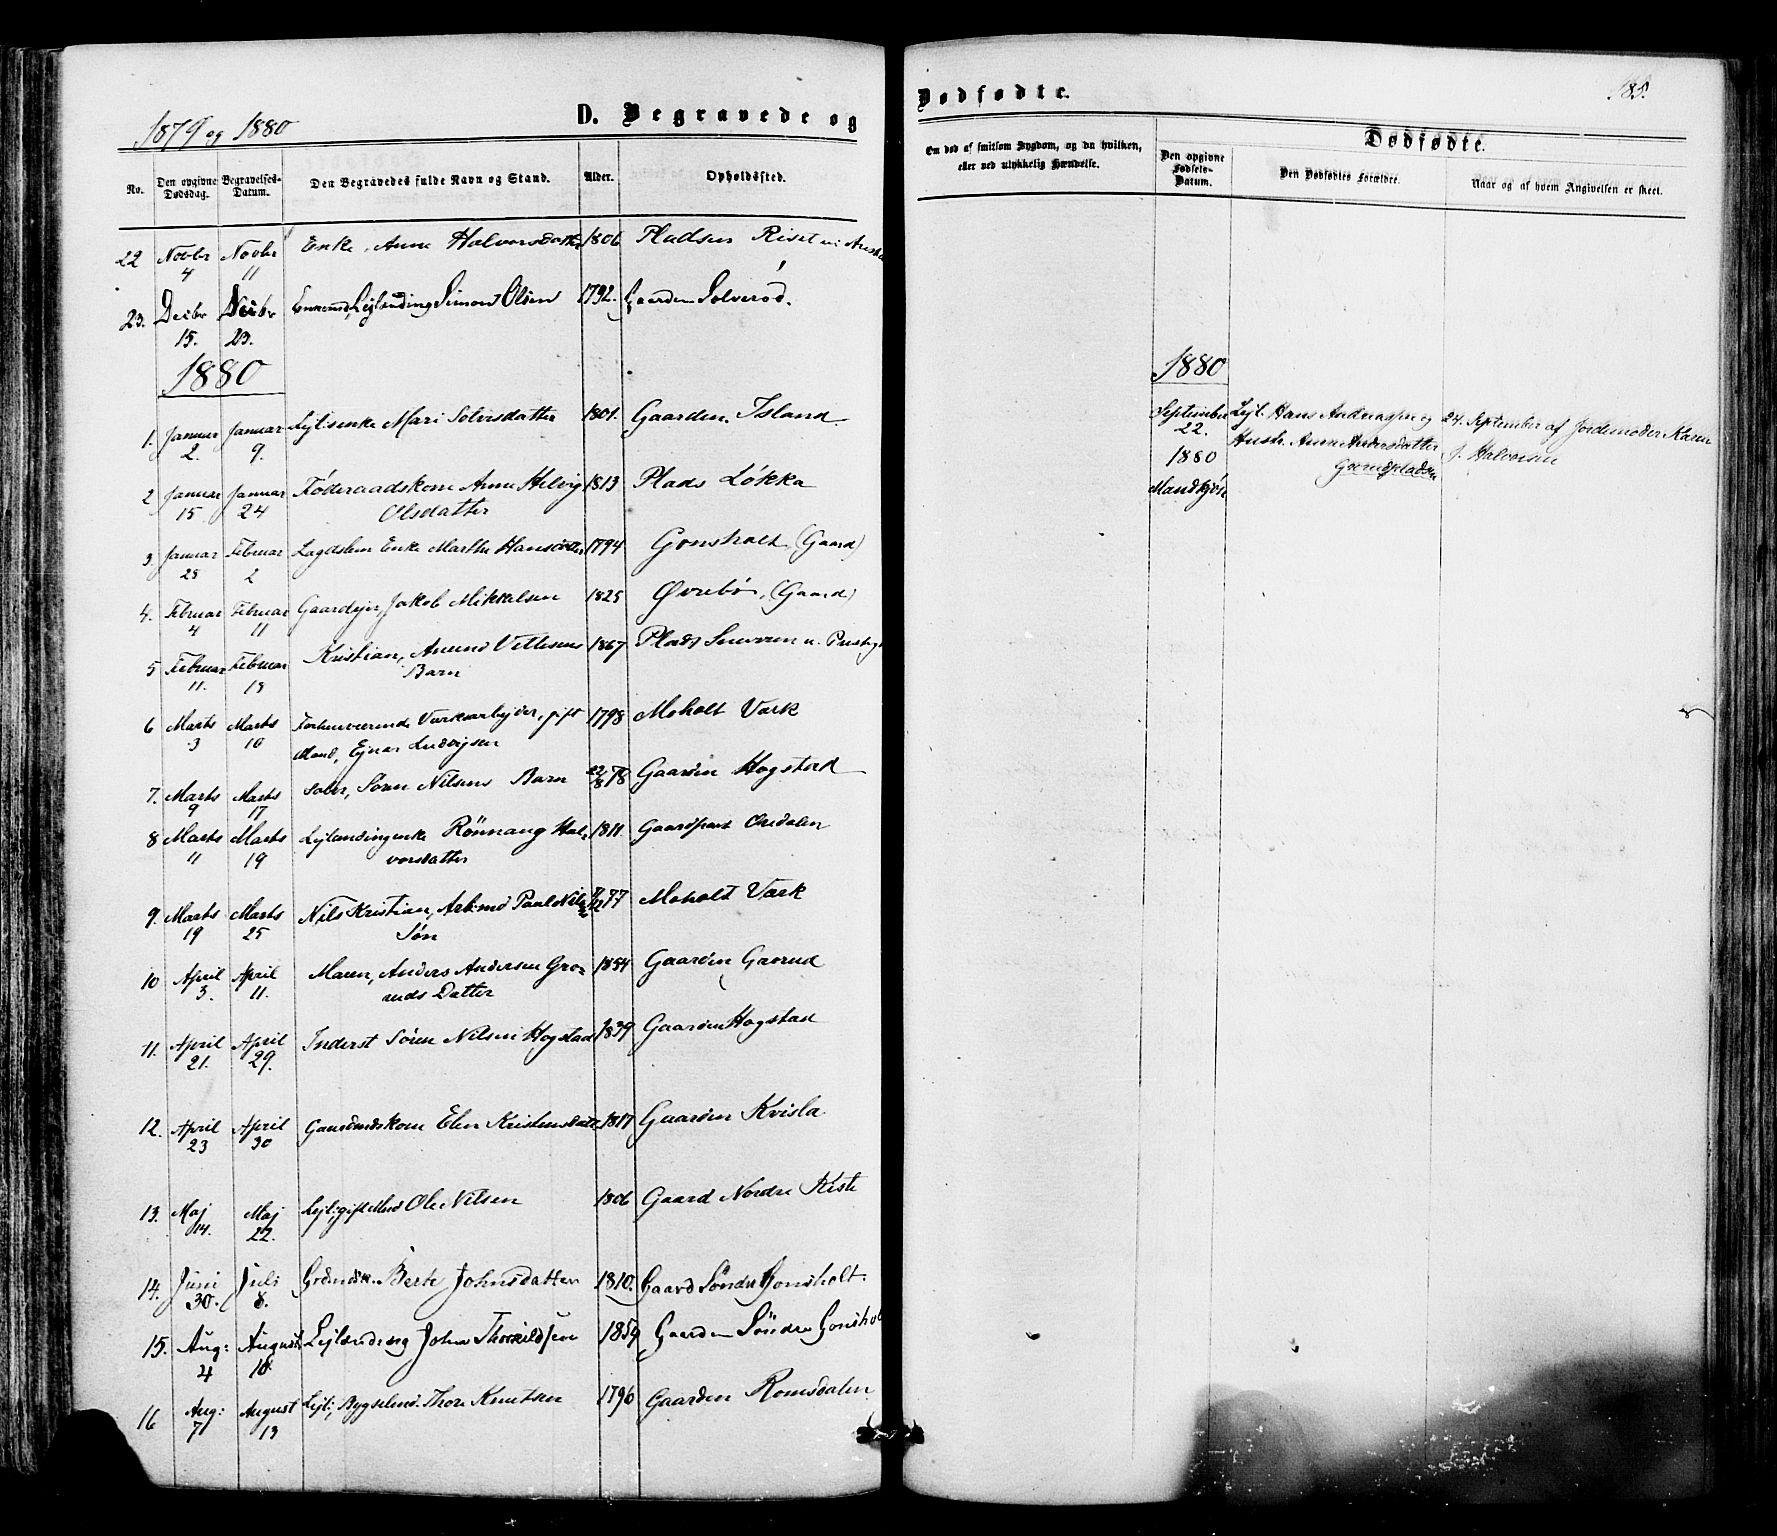 1879 og 1880
D. Begravede og
No.
Den opgivne Dødsdag.
Begravelses-Datum.
Den Begravedes fulde Navn og Stand.
Alder.
Opholdssted.
22 Novbr 4 Novbr 11 Enke, Anne Halvorsdatter 1806 Pladsen Riset
23. Decbr 15. Decbr 23. Enkemd, Lejlending Simon Olsen 1792. Gaarden Solverød.
1880
1. Januar 2. Januar 9. Lejl:enke Mari Solvesdatter 1801. Gaarden Island
2 Januar 15 Januar 24 Føderaadskone Anne Helvig 1813 Plads Løkka
Olsdatter
3. Januar 25 Februar 2 Lagdslem Enke Marthe Hansdatter 1794 Gonsholt (Gaard)
4. Februar 4 Februar 11 Gaardejer, Jakob Mikkelsen 1825 Øvrebø, (Gaard)
5 Februar 11. Februar 19 Kristian, Amund Vetlesens 1867 Plads
Barn
6 Marts 3 Marts 10 Forhenværende Værksarbejder, gift 1798 Moholt Værk
Mand, Ejnar Ludvigsen
7. Marts 9 Marts 17 Søren Nilsens Barn 22/8 78 Gaarden Hogstad
8 Marts 11 Marts 19 Lejlændingenke Rönnaug Hal- 1811. Gaardpart
vorsdatter
9. Marts 19 Marts 25 Nils Kristian, Arb:md Paul Nils 77 Moholt Værk
Søn
10 April 3. April 11. Maren, Anders Andersen Gro- 1854 Gaarden Gaarud
ruds Datter
11. April 21. April 29. Inderst Søren Nilsen Hogstad 1839 Gaarden Hogstad
12. April 23 April 30 Gaardmdskone Elen Kristensdatt. 1817 Gaarden Kvisla
13. Maj 14. Maj 22. Lejl: gift Md Ole Nilsen 1806 Gaard Nordre Kiste
14. Juni 30. Juli 8. Berte Johnsdatter 1810. Gaard Søndre Gonsholt.
15. Aug: 4 August 10. Lejlænding John Thorkildsen 1859 Gaarden Söndre Gonshol
16 Aug: 7 August 13 Lejl:, Bygselmd. Thor Knutsen 1796 Gaarden Romsdalen
Dødfødte.
185.
Om død af smitsom Sygdom, og da hvilken,
eller ved ulykkelig Hændelse.
Dødfødte.
Den opgivne Fødsels-Datum.
Den Dødfødtes Forældre.
Naar og af hvem Angivelsen er skeet.
1880
September 22. Lejl. Hans Andreassen og 24. September af Jordemoder Karen
Hustr. Anne Andersdatter J. Halvorsen
1880 Gaarudpladsen
Mandkjøn